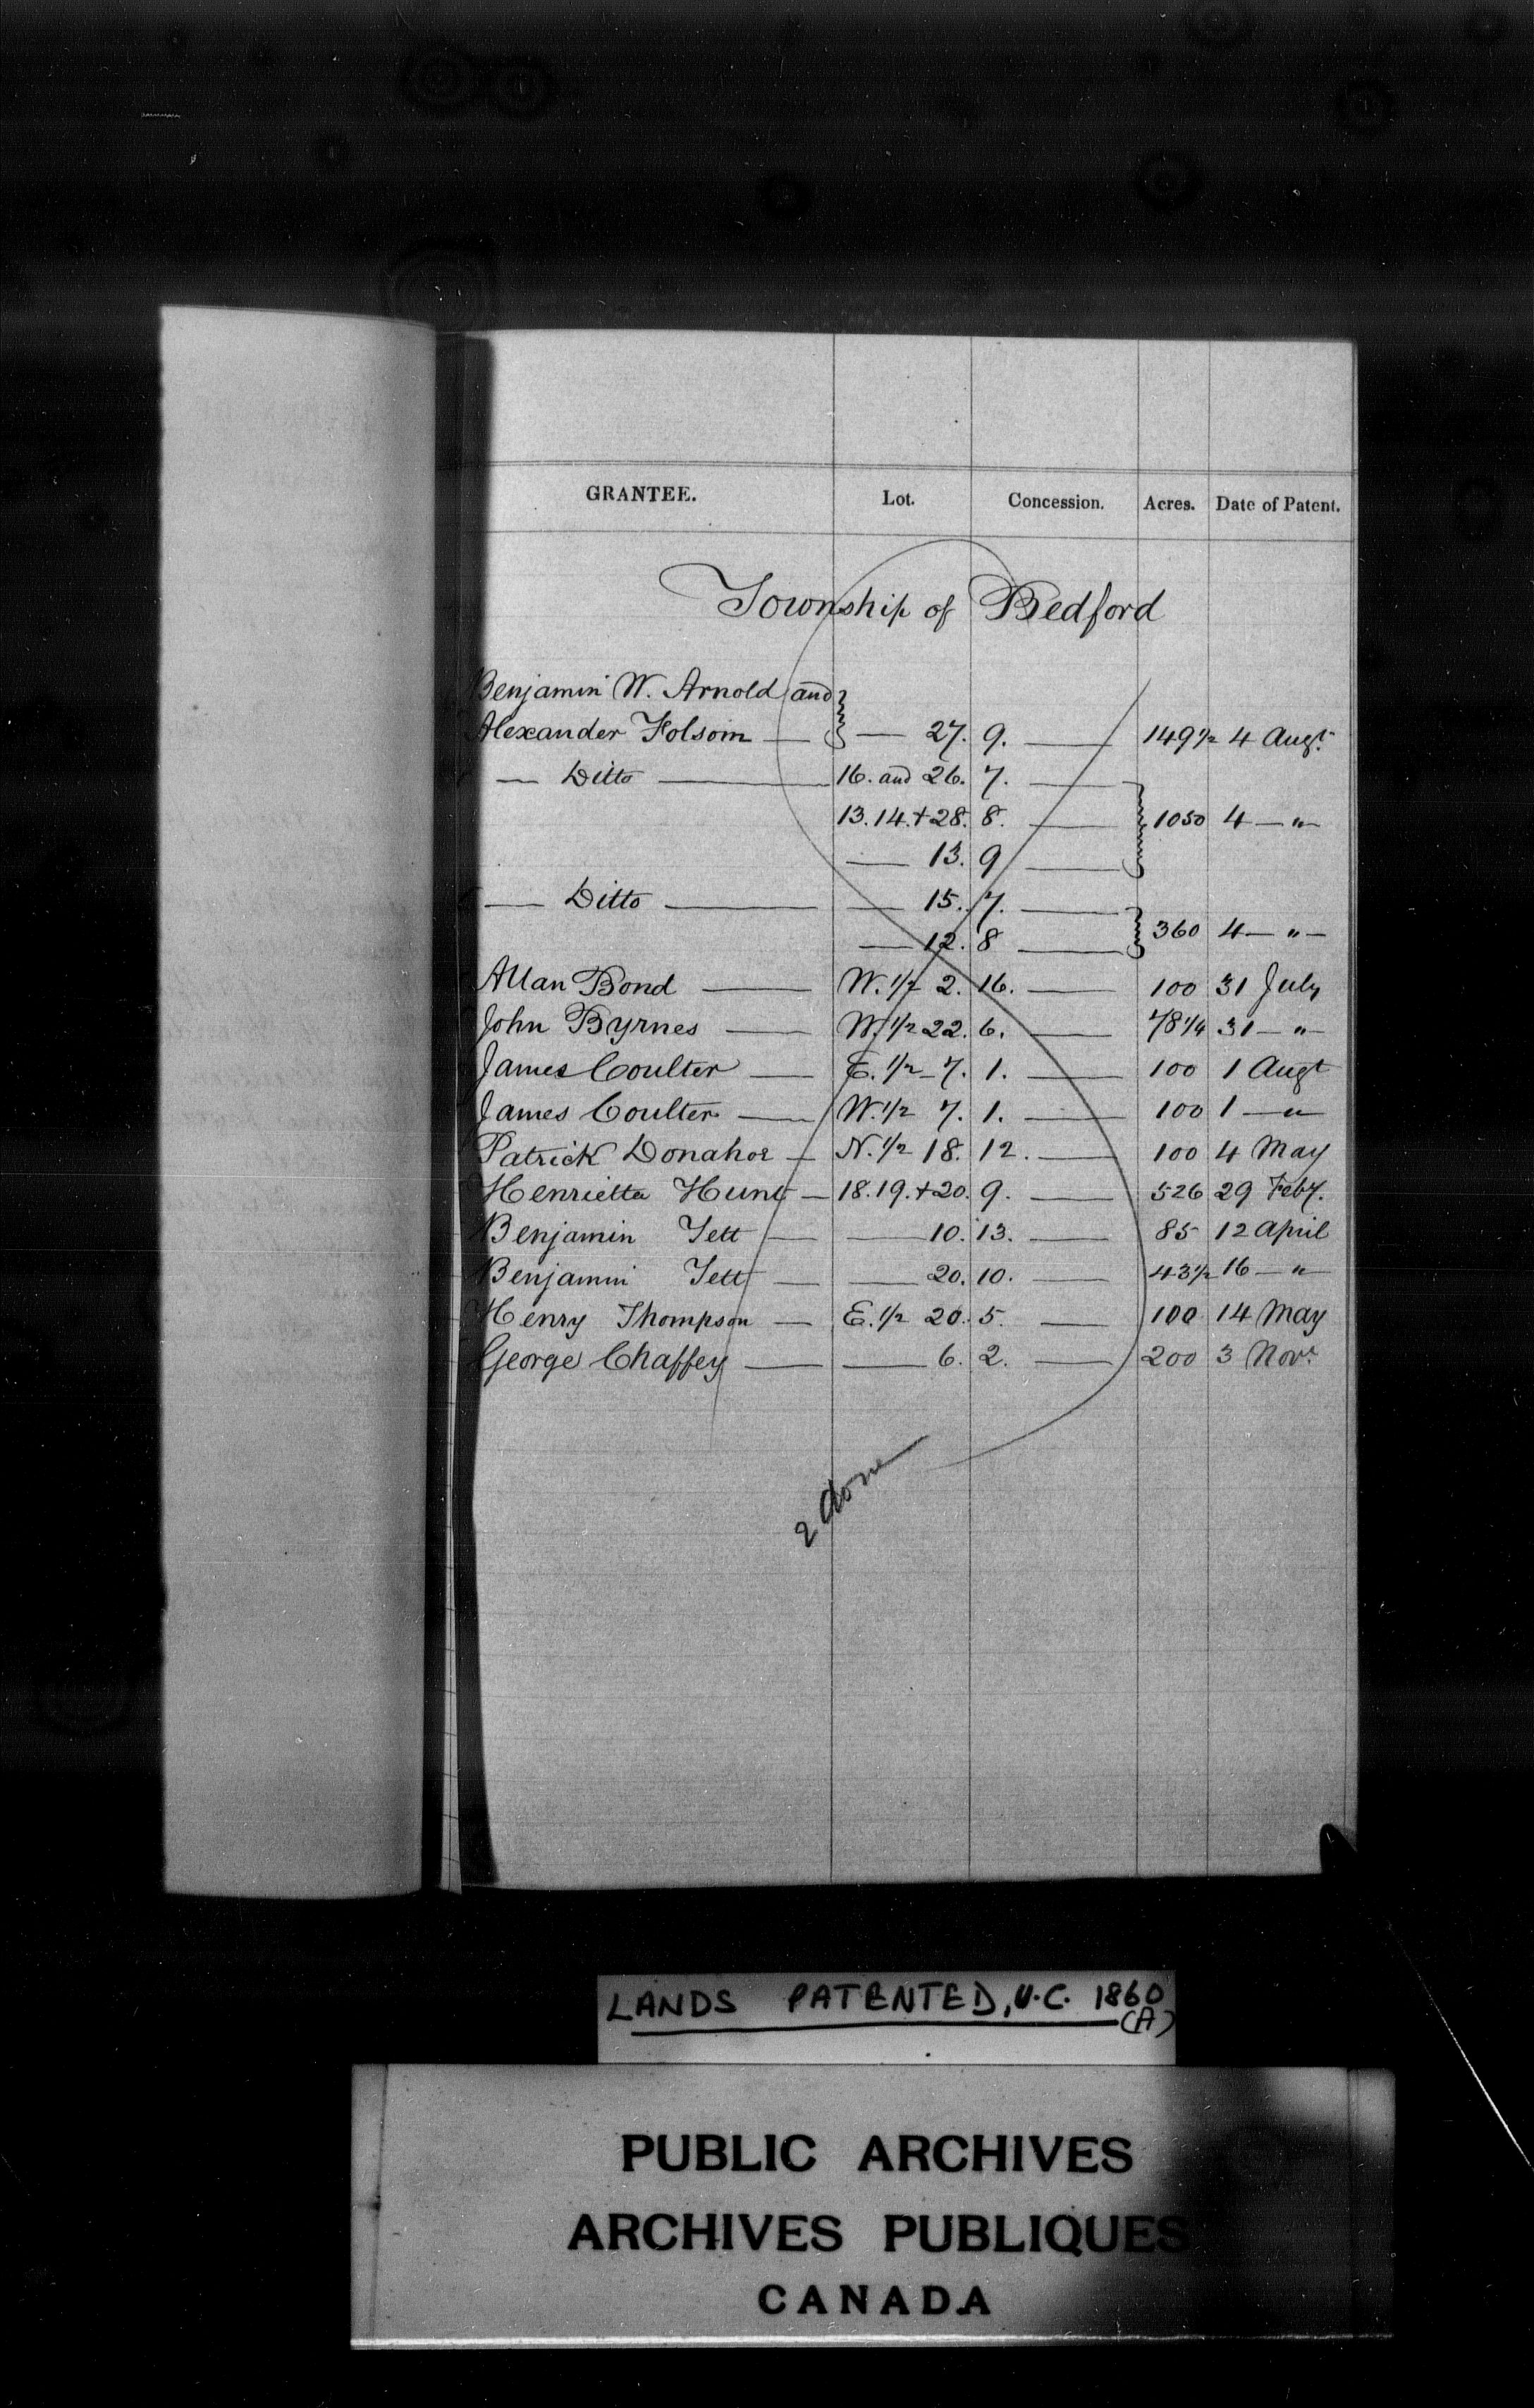 GRANTEE. Lot. Concession. Acres. Date of Patent.
Township of Bedford
Benjamin W. Arnold and
Alexander Folsom — 27. 9. — 149 1/2 4 Augt.
— Ditto — 16. and 26. 7. —
13. 14. + 28. 8. — 1050 4 — " —
— 13. 9 —
— Ditto — — 15. 7. —
— 12. 8 — 360 4 — " —
Allan Bond — W. 1/2 2. 16. — 100 31 July
John Byrnes — W. 1/2 22. 6. — 78 1/4 31 — " —
James Coulter — E. 1/2 — 7. 1. — 100 1 Augt
James Coulter — W. 1/2 7. 1. — 100 1 — " —
Patrick Donahoe — N. 1/2 18. 12. — 100 4 May
Henrietta Hunt — 18. 19. + 20. 9. — 526 29 Feby.
Benjamin Tett — — 10. 13. — 85 12 April
Benjamin Tett — — 20. 10. — 43 1/2 16 — " —
Henry Thompson — E. 1/2 20. 5. — 100 14 May
George Chaffey — — 6. 2. — 200 3 Novr.
2 done
LANDS PATENTED, U.C. 1860
(A)
PUBLIC ARCHIVES
ARCHIVES PUBLIQUES
CANADA